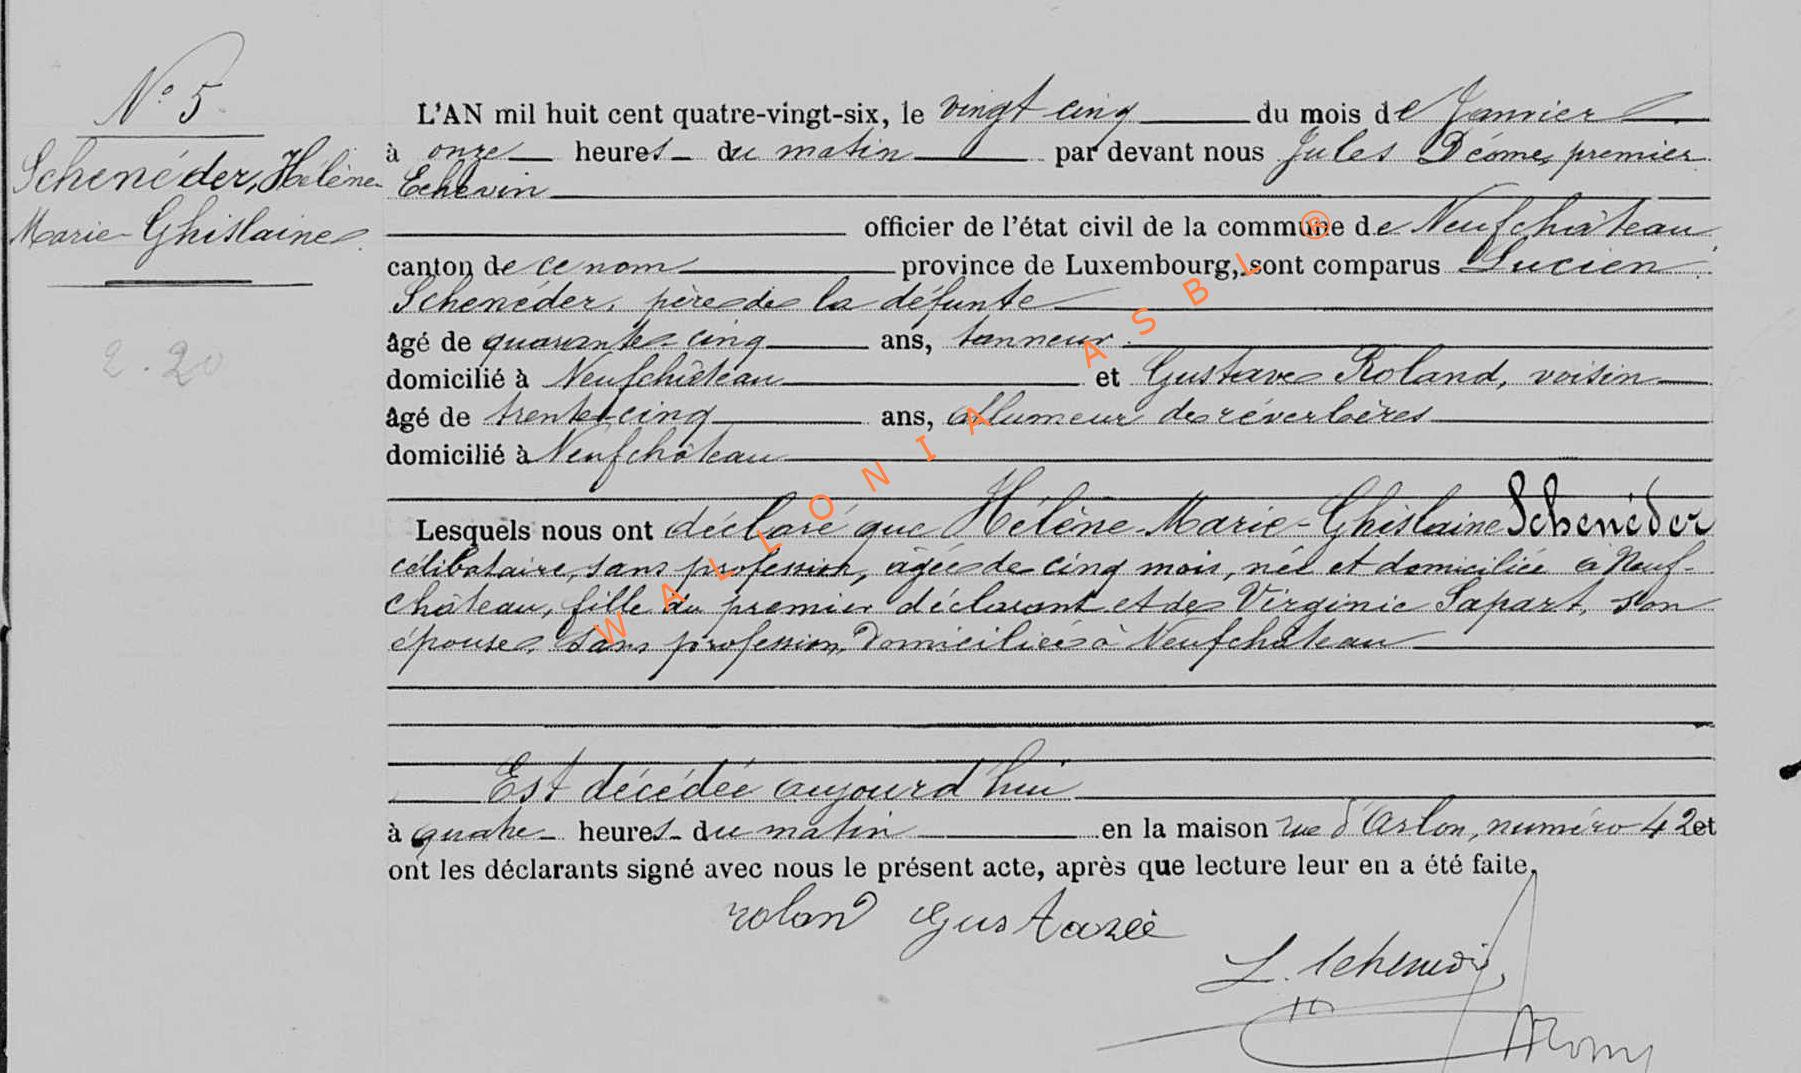 N° 5
Schenéder, Hélène
Marie-Ghislaine.
2.20
L'AN mil huit cent quatre-vingt-six, le vingt cinq du mois de Janvier
à onze heures du matin par devant nous Jules Déome, premier
Echevin
officier de l'état civil de la commune de Neufchâteau
canton de ce nom province de Luxembourg, sont comparus Lucien
Schenéder, père de la défunte
âgé de quarante cinq ans, tanneur
domicilié à Neufchâteau et Gustave Roland, voisin
âgé de trente cinq ans, allumeur de réverbères
domicilié à Neufchâteau
Lesquels nous ont déclaré que Hélène-Marie-Ghislaine Schenéder
célibataire, sans profession, âgée de cinq mois, née et domiciliée à Neuf-
château, fille du premier déclarant et de Virginie Sapart, son
épouse, sans profession, domiciliée à Neufchâteau
Est décédée aujourd'hui
à quatre heures du matin en la maison rue d'Arlon, numéro 42 et
ont les déclarants signé avec nous le présent acte, après que lecture leur en a été faite.
roland Gustave
L. Schenedr
WALLONIA ASBL ®